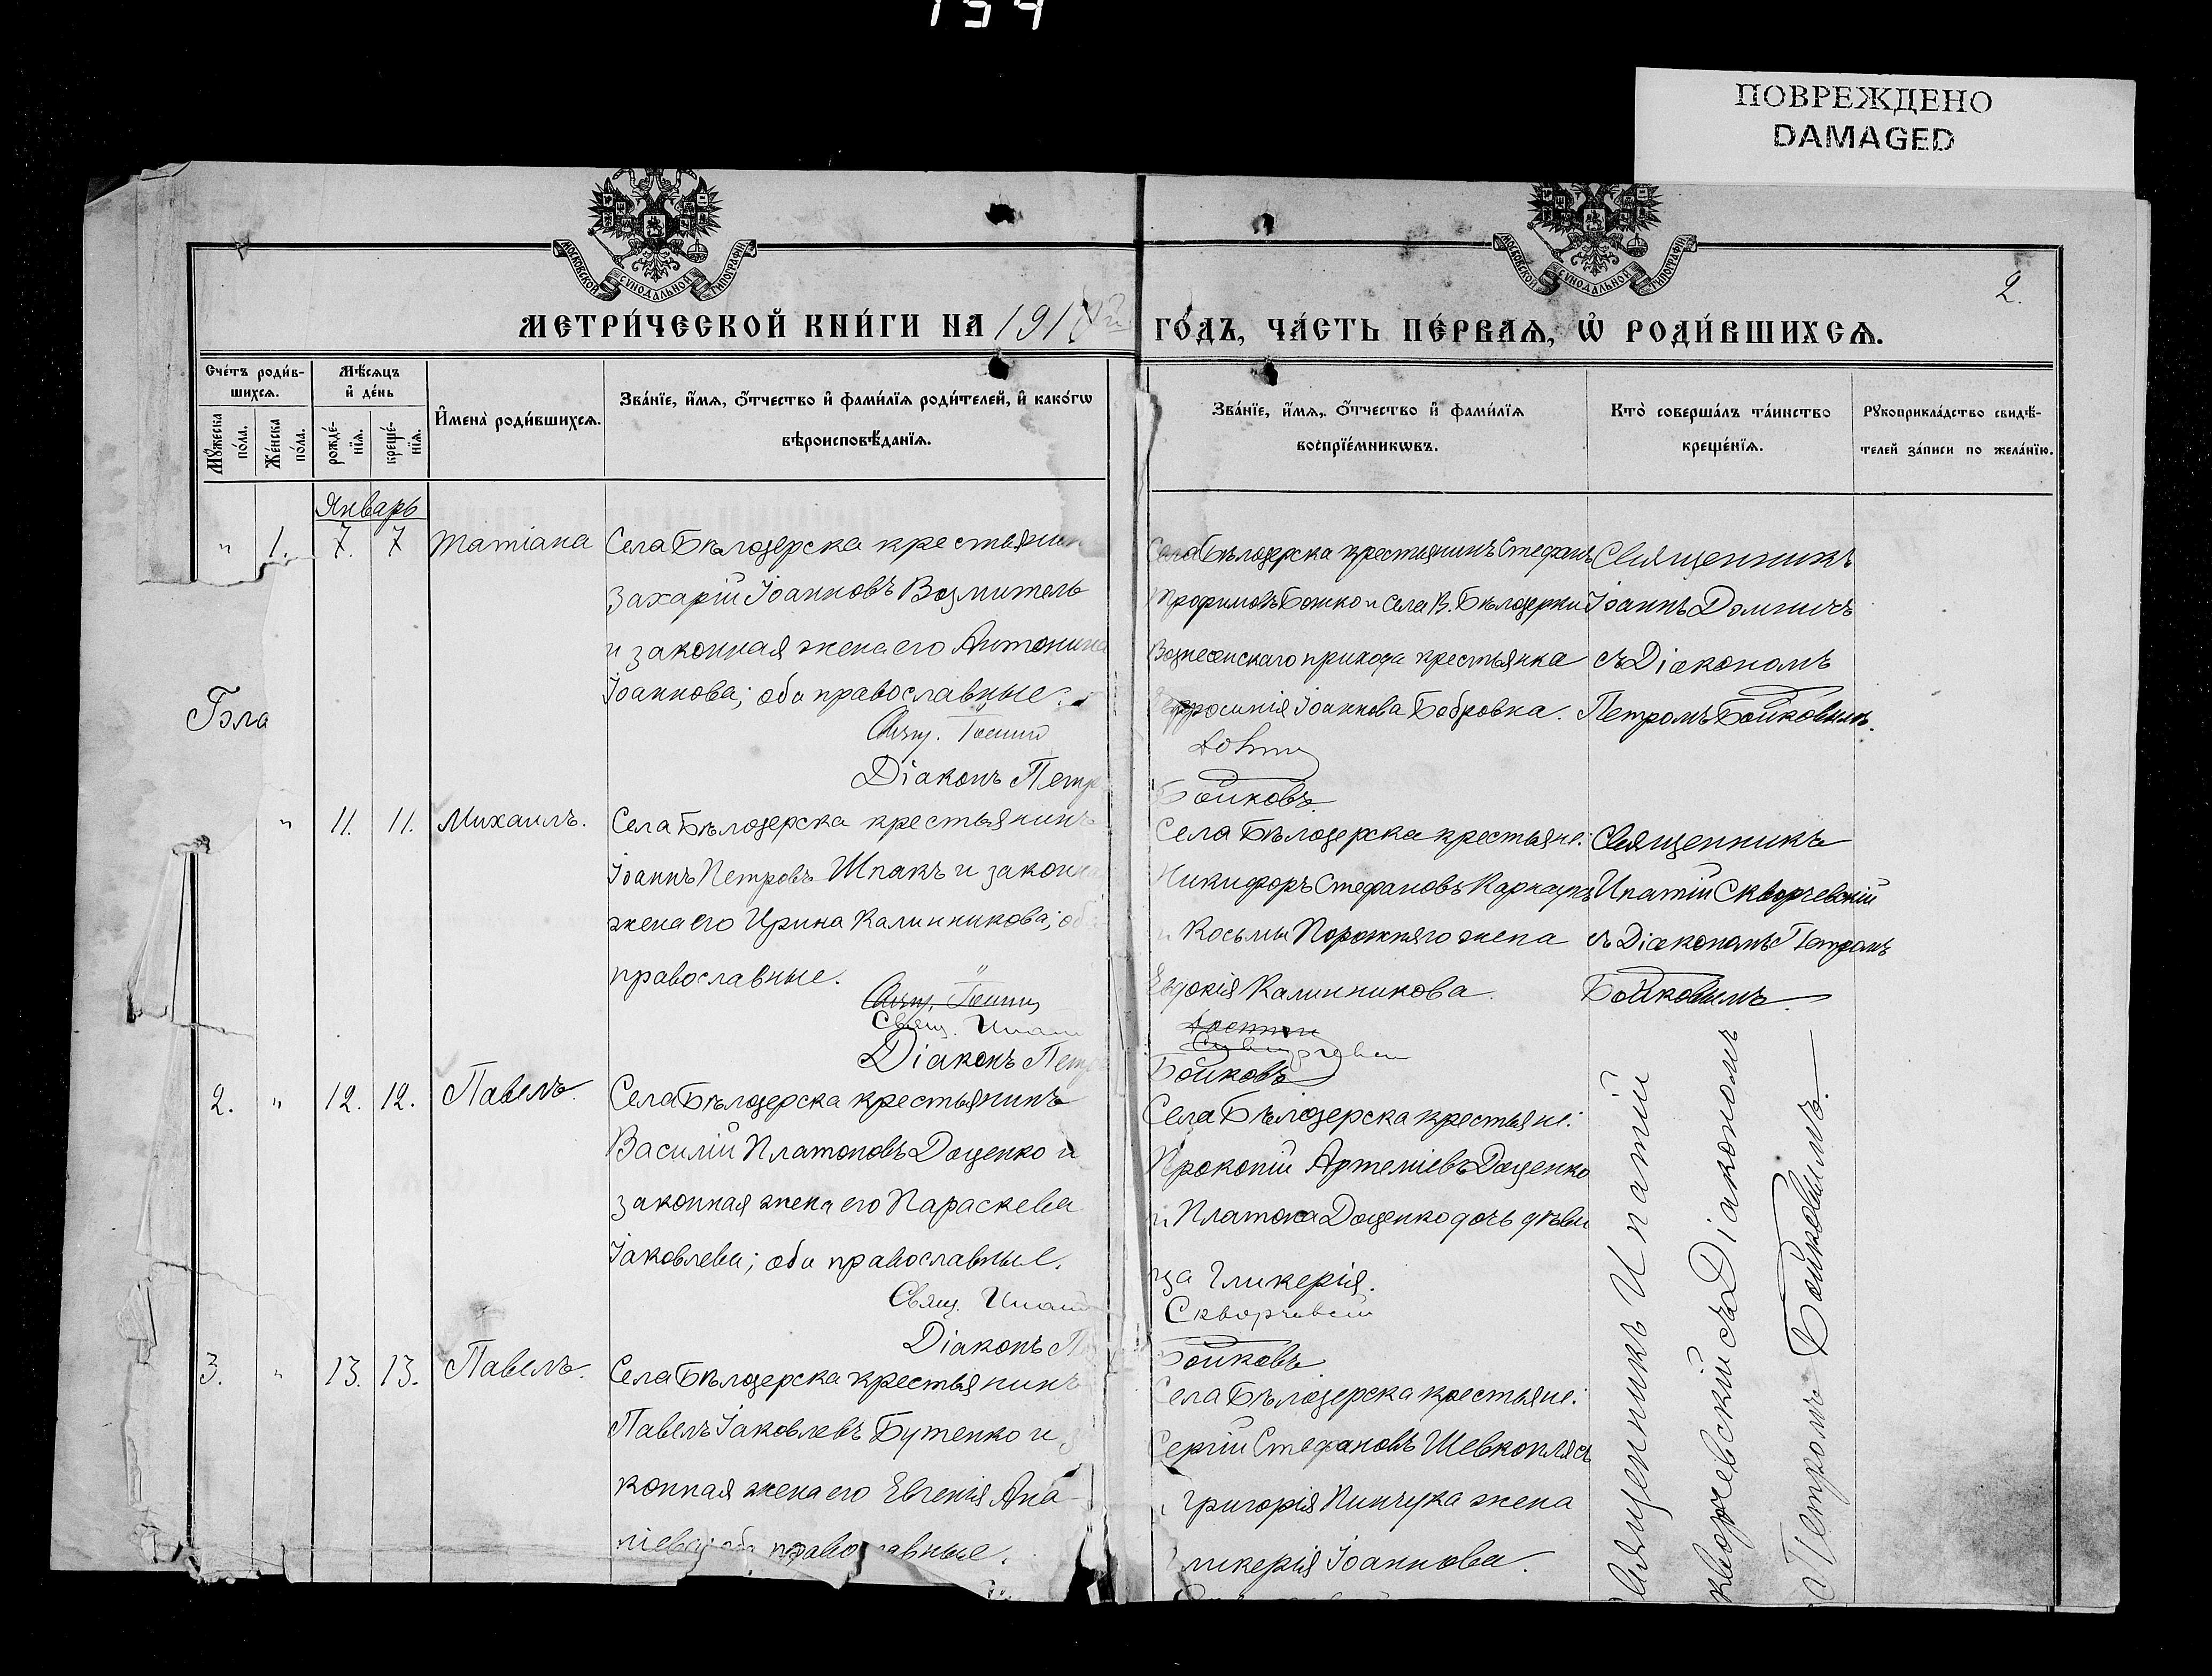 154
ПОВРЕЖДЕНО
DAMAGED
МОСКОВСКОЙ СѴНОДАЛЬНОЙ ТИПОГРАФІИ
МОСКОВСКОЙ СѴНОДАЛЬНОЙ ТИПОГРАФІИ
2.
МЕТРИ́ЧЕСКОЙ КНИ́ГИ НА 191
ГО́ДЪ, ЧА́СТЬ ПЕ́РВАѦ, Ѡ҆ РОДИ́ВШИХСѦ.
Сче́тъ роди́в-
шихсѧ.
Мꙋ́жеска по́ла.
Же́нска по́ла.
Мѣ́сѧцъ
и҆ де́нь
рожде́-
нїѧ.
креще́-
нїѧ.
И҆мена̀ роди́вшихсѧ.
Зва́нїе, и҆́мѧ, ѻ҆́тчество и҆ фами́лїѧ роди́телей, и҆ како́гѡ
вѣроисповѣ́данїѧ.
Зва́нїе, и҆́мѧ, ѻ҆́тчество и҆ фами́лїѧ
воспрїе́мникѡвъ.
Кто̀ соверша́лъ та́инство
креще́нїѧ.
Рꙋкоприкла́дство свидѣ́-
телей за́писи по жела́нїю.
Январь
" 1. 7. 7 Татіана
Села Бѣлозерска крестьянин
Захарій Іоанновъ Возмитель
и законная жена его Антонина
Іоаннова; оба православные.
Свящ. Іоанн
Діаконъ Петр
Села Бѣлозерска крестьянинъ Стефанъ
Трофимовъ Божко и села В. Бѣлозерки
Вознесенскаго прихода крестьянка
Іоаннова Бобровка.
Бойковъ
Священникъ
Іоаннъ Домничъ
съ Діакономъ
Петромъ Бойковымъ.
" 11. 11. Михаилъ.
Села Бѣлозерска крестьянинъ
Іоаннъ Петровъ Шпакъ и законн
жена его Ирина Калинникова; об
православные.
Свящ. Іоанн
Свящ. Ипат
Діаконъ Петр
Села Бѣлозерска крестьяне:
Никифоръ Стефановъ
и Косьмы Порожняго жена
Евдокія Калинникова.
Бойковъ
Священникъ
Ипатій Скворчевскій
съ Діакономъ Петромъ
Бойковымъ
2. " 12. 12. Павелъ.
Села Бѣлозерска крестьянинъ
Василій Платоновъ Доценко и
законная жена его Параскева
Іаковлева; оба православные.
Свящ. Ипат
Діаконъ П
Села Бѣлозерска крестьяне:
Прокопій Артеміевъ Доценко
и Платона Доценко дочь дѣви
ца Гликерія.
Скворчевскій
Бойковъ
3. " 13. 13. Павелъ.
Села Бѣлозерска крестьянинъ
Павелъ Іаковлевъ Бутенко и з
конная жена его Евгенія Ана-
ніева; оба православные.
Села Бѣлозерска крестьяне:
Сергій Стефановъ Шевкоплясъ
Григорія Пинчука жена
Гликерія Іоаннова.
Священникъ Ипатій
Скворчевскій съ Діакономъ
Петромъ Бойковымъ.